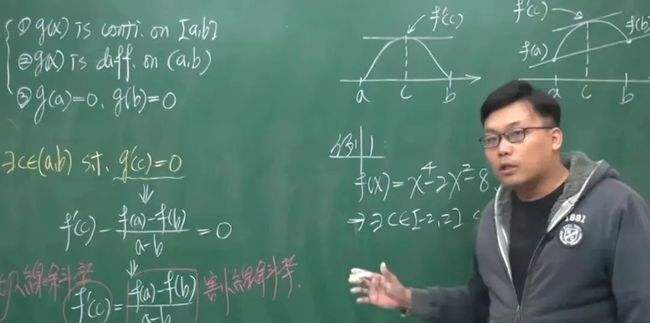 ① g(x) is conti. on [a,b]
② g(x) is diff. on (a,b)
③ g(a)=0, g(b)=0
∃ c∈(a,b) st. g'(c)=0
f'(c) - (f(a)-f(b))/(a-b) = 0
切線斜率 f'(c) = (f(a)-f(b))/(a-b) 割線斜率.
f'(c)
a c b
f'(c)
f(a) f(b)
a c b
例 1
f(x) = x⁴-2x²-8
⇒ ∃ c∈[-2,2]
1891